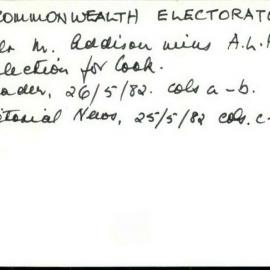 COMMONWEALTH ELECTORATO
lr M. Addison wins A.L.P
election for Cook.
eader, 26/5/82. cols a-b.
ctorial News, 25/5/82 cols. c-